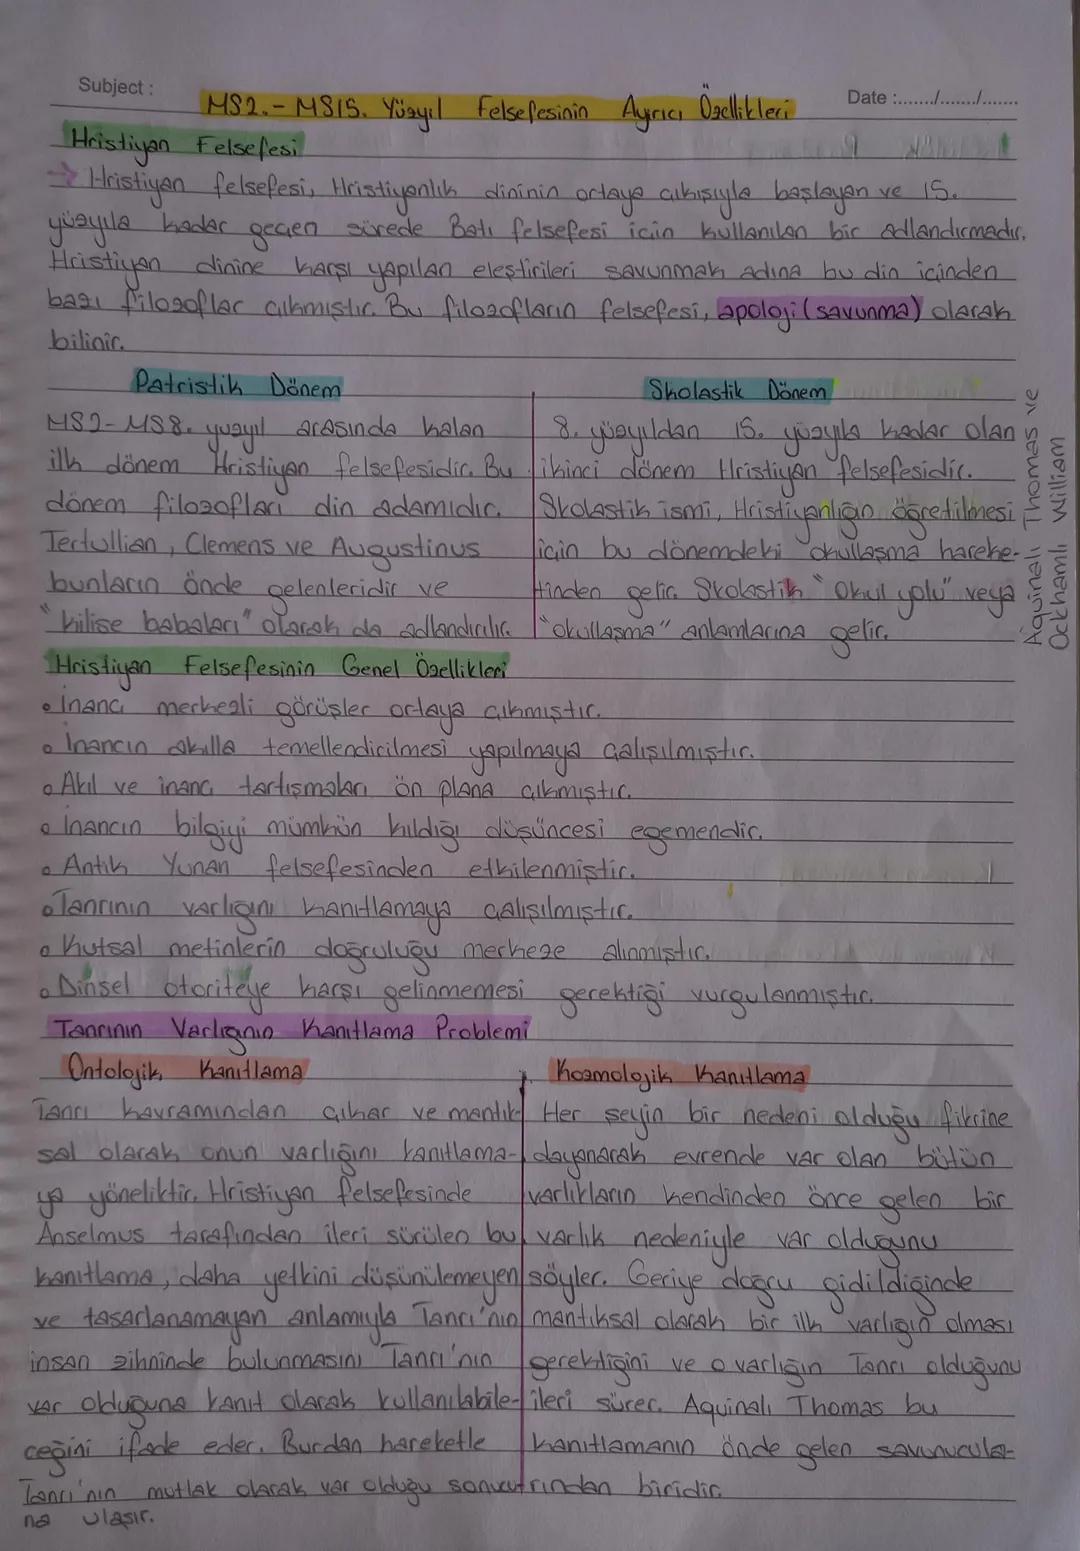 Subject :
Date :......./......./.......
MS2. - MS15. Yüzyıl Felsefesinin Ayırıcı Özellikleri
Hristiyan Felsefesi
→ Hristiyan felsefesi, Hristiyanlık dininin ortaya çıkışıyla başlayan ve 15.
yüzyıla kadar geçen sürede Batı felsefesi için kullanılan bir adlandırmadır.
Hristiyan dinine karşı yapılan eleştirileri savunmak adına bu din içinden
bazı filozoflar çıkmıştır. Bu filozofların felsefesi, apoloji (savunma) olarak
bilinir.
Patristik Dönem
MS2-MS8. yüzyıl arasında kalan
ilk dönem Hristiyan felsefesidir. Bu
dönem filozofları din adamıdır.
Tertullian, Clemens ve Augustinus
bunların önde gelenleridir ve
"kilise babaları" olarak da adlandırılır.
Skolastik Dönem
8. yüzyıldan 15. yüzyıla kadar olan
ikinci dönem Hristiyan felsefesidir.
Skolastik ismi, Hristiyanlığın öğretilmesi
için bu dönemdeki okullaşma hareke-
tinden gelir. Skolastik "Okul yolu" veya
"okullaşma" anlamlarına gelir.
Aquinalı Thomas ve
Ockhamlı William
Hristiyan Felsefesinin Genel Özellikleri
• İnanç merkezli görüşler ortaya çıkmıştır.
• İnancın akılla temellendirilmesi yapılmaya çalışılmıştır.
• Akıl ve inanç tartışmaları ön plana çıkmıştır.
• İnancın bilgiyi mümkün kıldığı düşüncesi egemendir.
• Antik Yunan felsefesinden etkilenmiştir.
• Tanrının varlığını kanıtlamaya çalışılmıştır.
• Kutsal metinlerin doğruluğu merkeze alınmıştır.
• Dinsel otoriteye karşı gelinmemesi gerektiği vurgulanmıştır.
Tanrının Varlığının Kanıtlama Problemi
Ontolojik Kanıtlama
Tanrı kavramından çıkar ve mantık
sal olarak onun varlığını kanıtlama-
ya yöneliktir. Hristiyan felsefesinde
Anselmus tarafından ileri sürülen bu
kanıtlama, daha yetkini düşünülemeyen
ve tasarlanamayan anlamıyla Tanrı'nın
insan zihninde bulunmasını Tanrı'nın
var olduğuna kanıt olarak kullanılabile-
ceğini ifade eder. Burdan hareketle
Tanrı'nın mutlak olarak var olduğu sonucu
na ulaşır.
Kozmolojik Kanıtlama
Her şeyin bir nedeni olduğu fikrine
dayanarak evrende var olan bütün
varlıkların kendinden önce gelen bir
varlık nedeniyle var olduğunu
söyler. Geriye doğru gidildiğinde
mantıksal olarak bir ilk varlığın olması
gerektiğini ve o varlığın Tanrı olduğunu
ileri sürer. Aquinalı Thomas bu
kanıtlamanın önde gelen savunucula-
rından biridir.